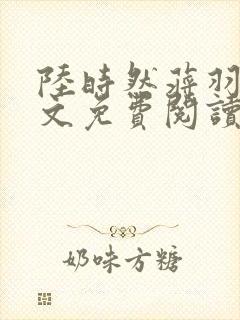 陸時然蔣羽
文免費閱讀
奶味方糖